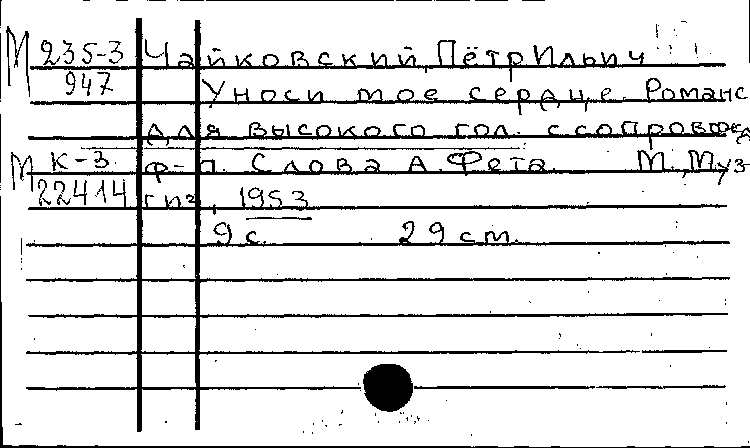 М 235-3 Чайковский, Пётр Ильич
947 Уноси мое сердце. Романс
для высокого гол. с сопровожд
М К-3 ф-п. Слова А. Фета. М., Муз
22414 гиз, 1953
9 с. 29 см.